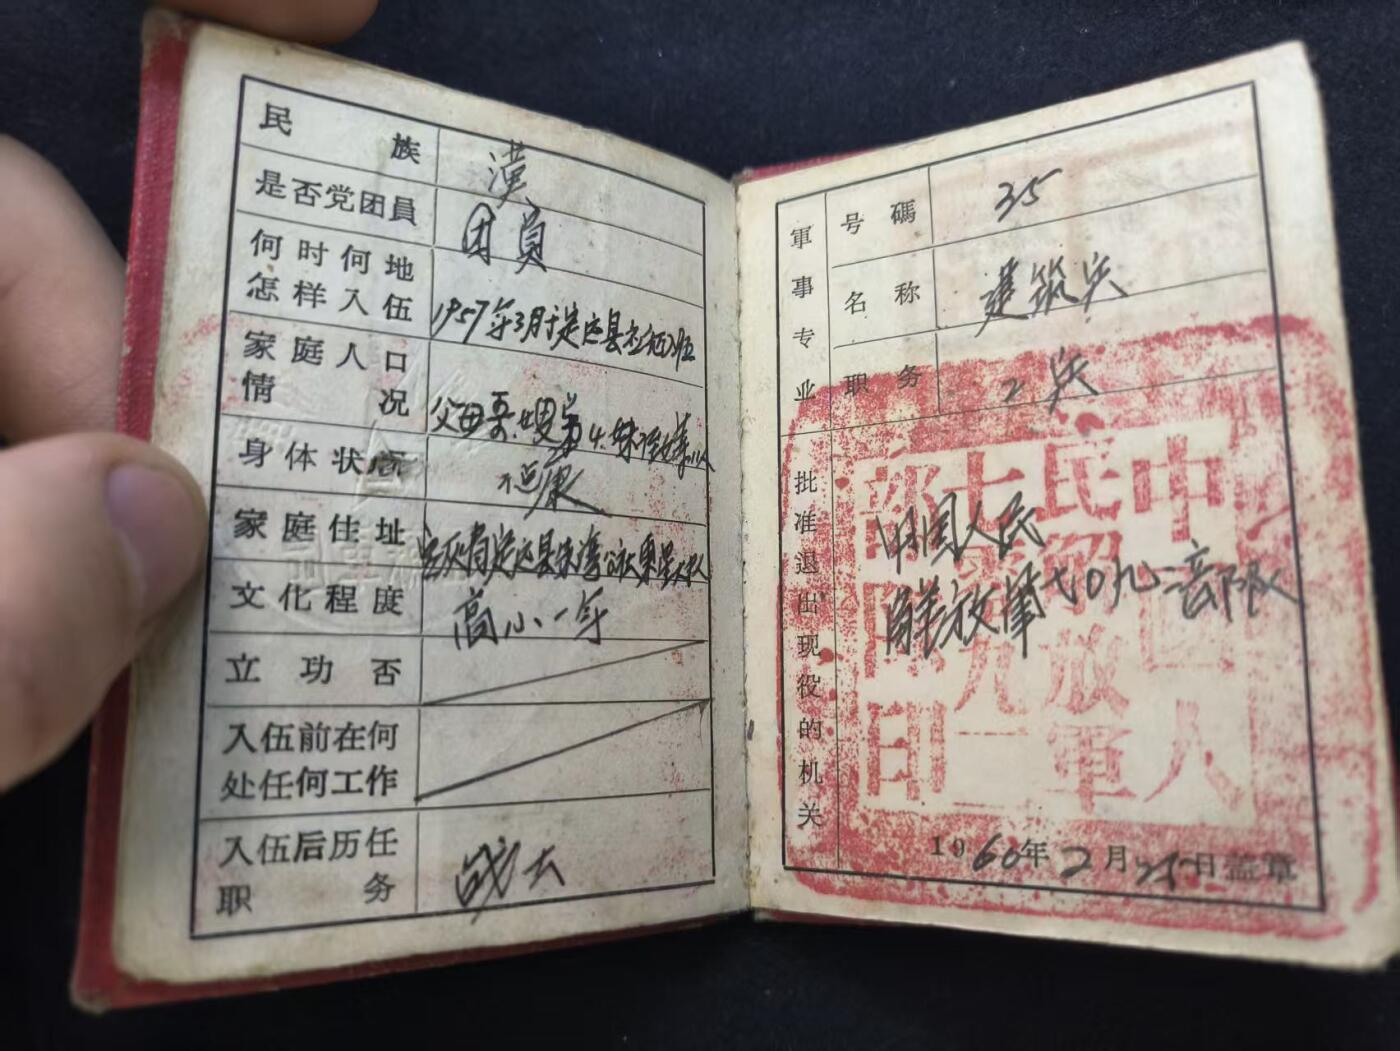 民族 漢
是否党团員 团員
何时何地
怎样入伍 1957年3月于定远县应征入伍
家庭人口
情况 父母哥嫂弟4.妹
身体状况 健康
家庭住址 安灰省定远县朱湾公社
文化程度 高小一年
立功否
入伍前在何
处任何工作
入伍后历任
职务 战士
軍事专业
号碼 35
名称 建筑兵
职务 2兵
批准退出现役的机关
中国人民
解放軍七〇九一部队
1960年2月25日盖章
中国人
民解放軍
七零九一
部队印